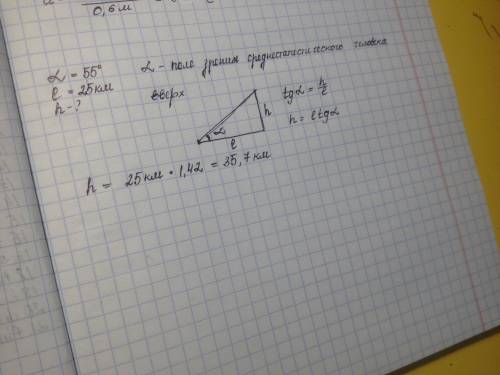 0,6 м
α = 55°
α - поле зрения среднестатистического человека
ℓ = 25 км
вверх
h - ?
tgα = h/ℓ
h = ℓtgα
α
h
ℓ
h = 25 км · 1,42 = 35,7 км